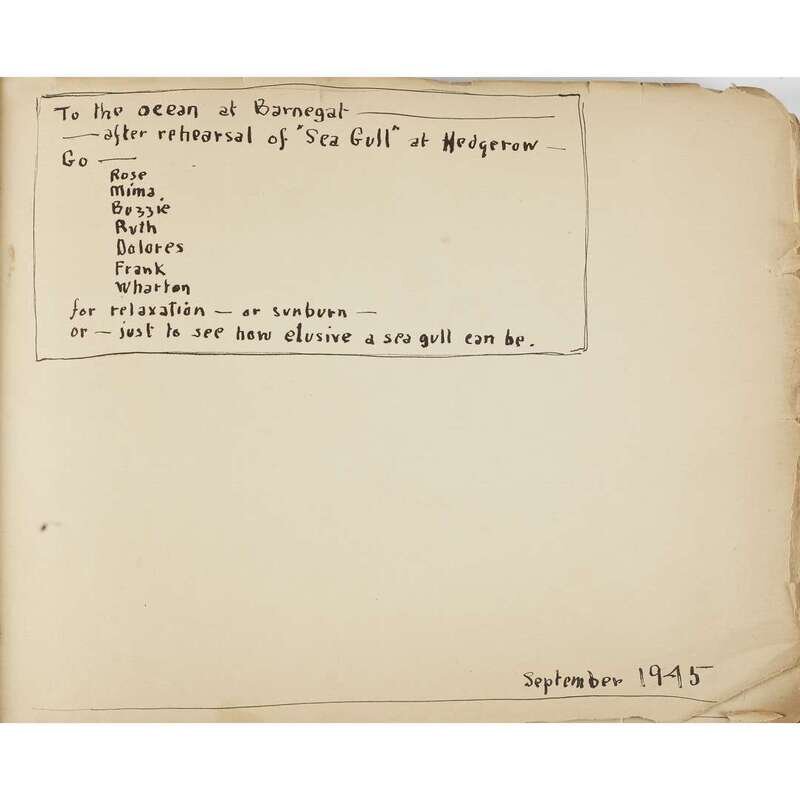 To the ocean at Barnegat —
— after rehearsal of "Sea Gull" at Hedgerow —
Go —
Rose
Mima
Buzzie
Ruth
Dolores
Frank
Wharton
for relaxation — or sunburn —
or — just to see how elusive a sea gull can be.
September 1945